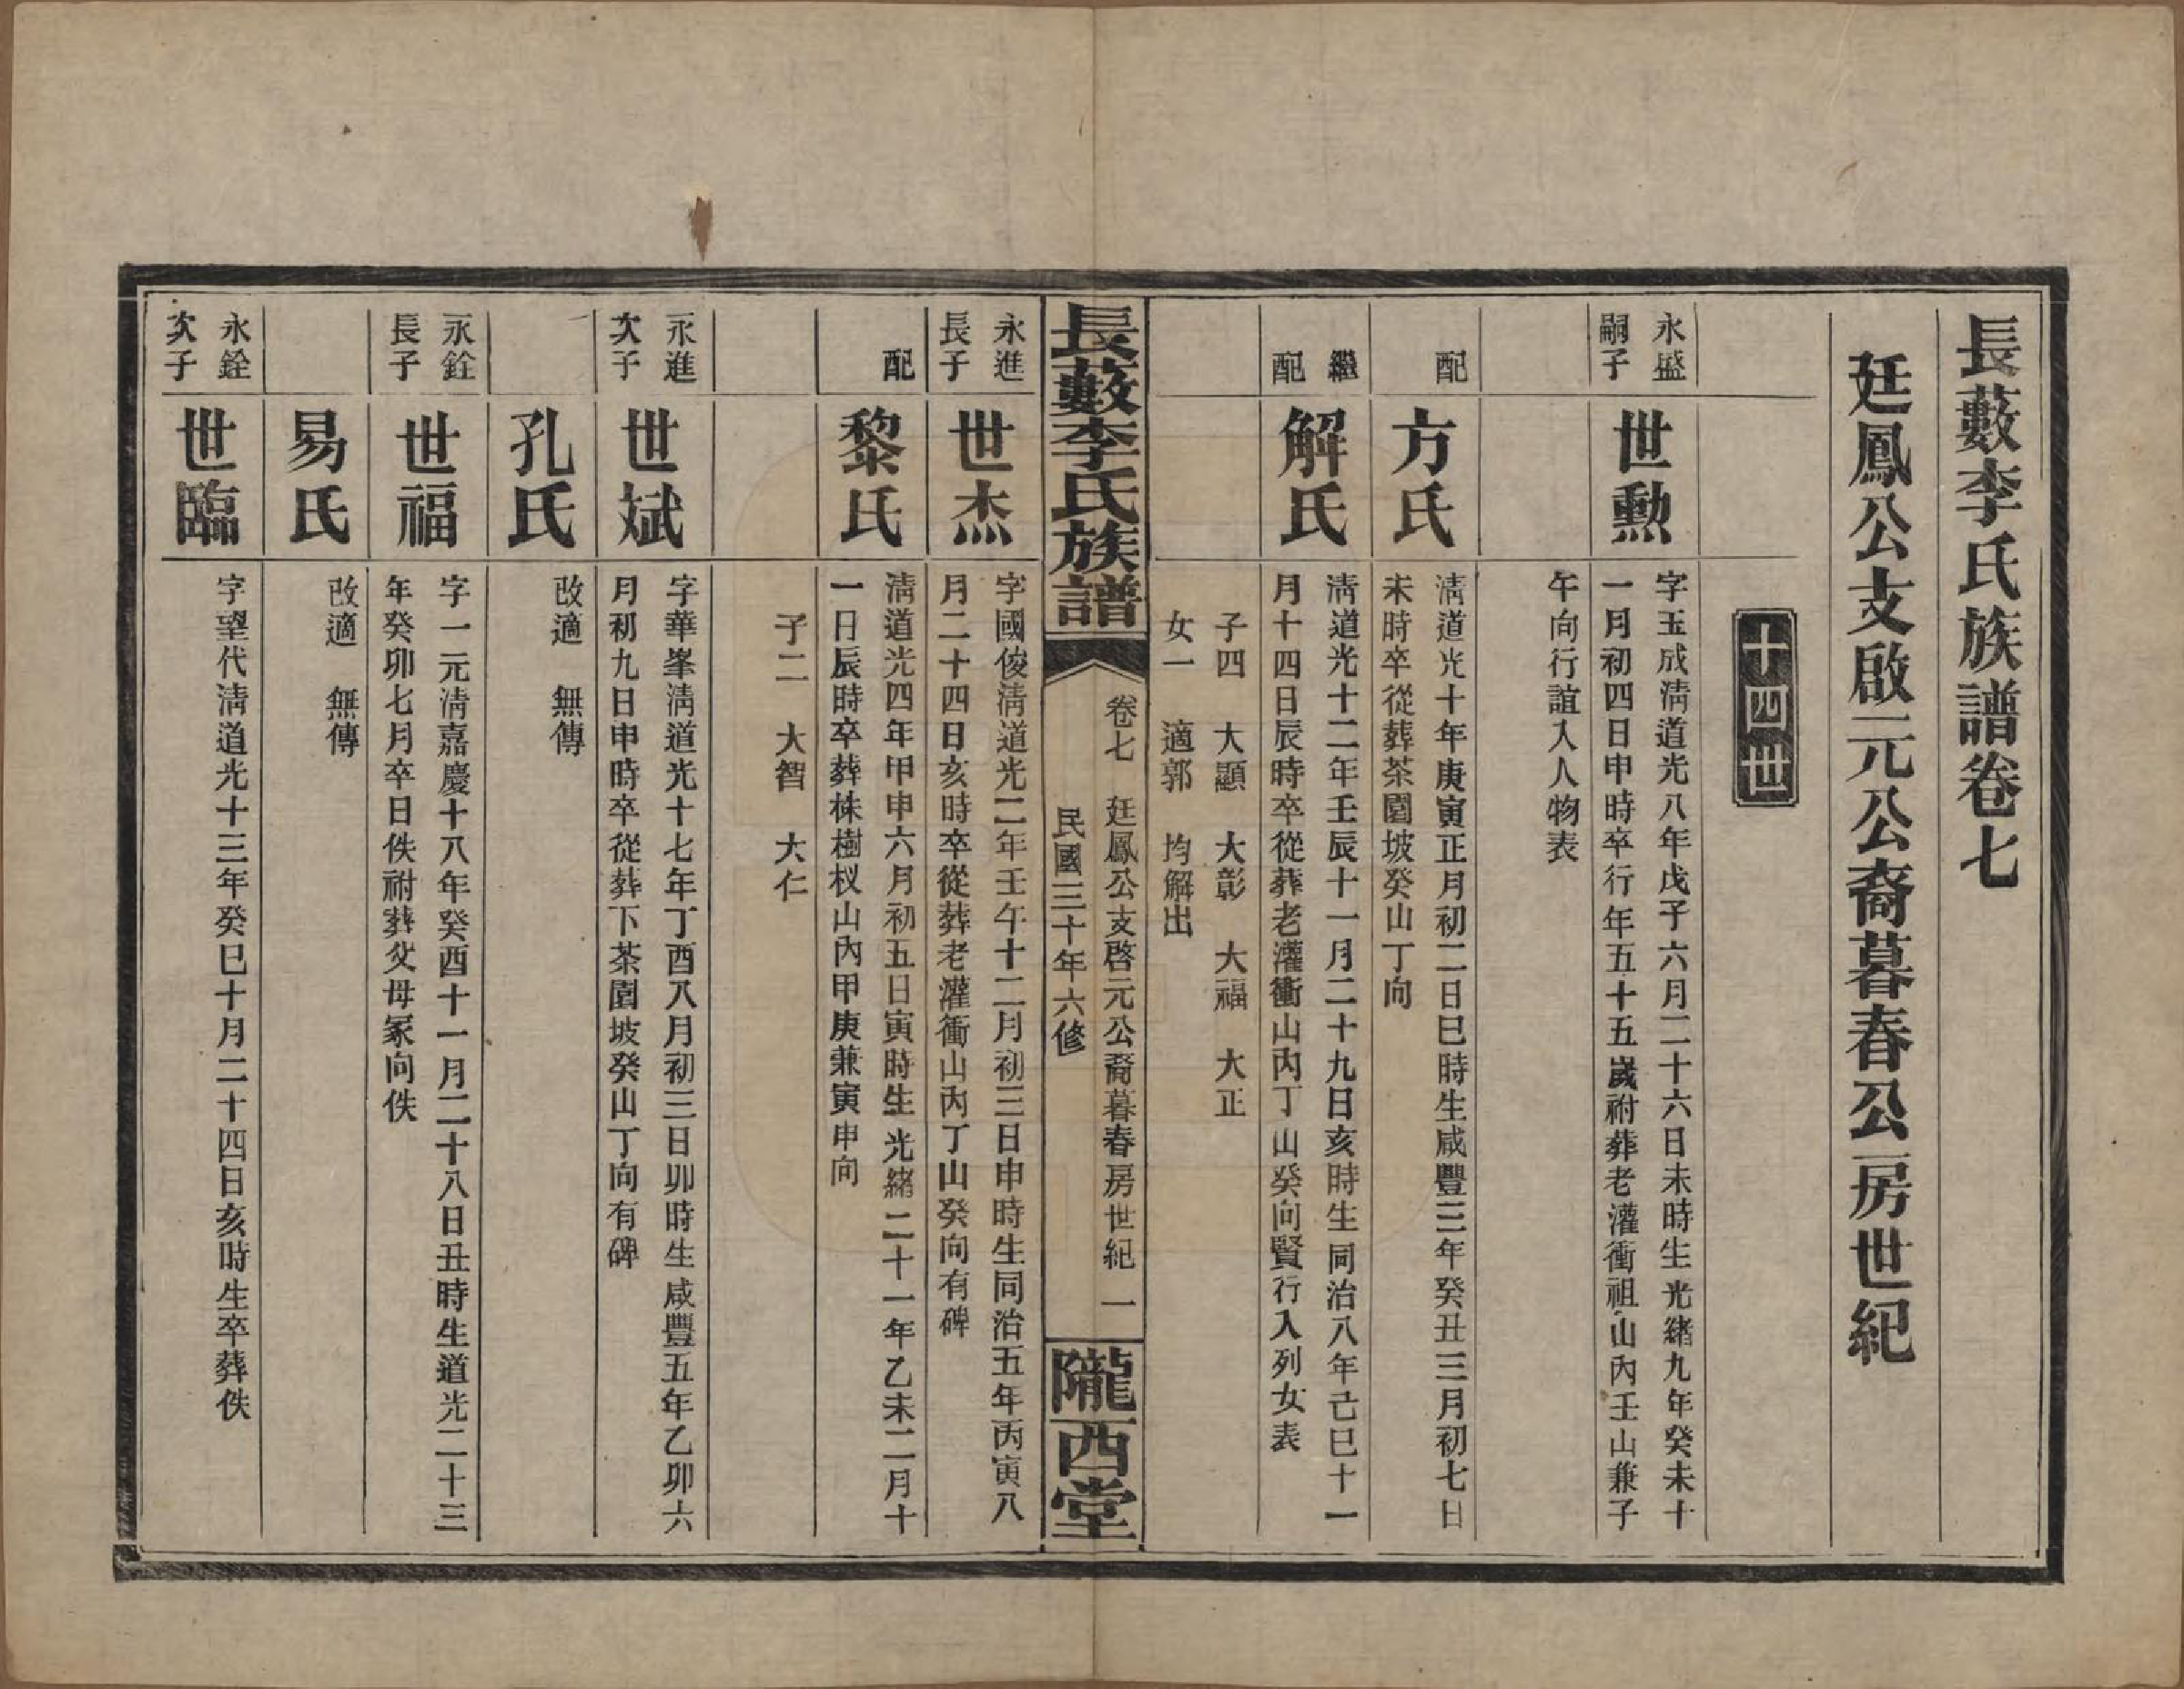 長藪李氏族譜卷七
廷鳳公支啟元公裔暮春公房世紀
十四世
永盛
嗣子
世勲
字玉成淸道光八年戊子六月二十六日未時生光緒九年癸未十
一月初四日申時卒行年五十五歲祔葬老灌衝祖山內壬山兼子
午向行誼入人物表
配
方氏
淸道光十年庚寅正月初二日巳時生咸豐三年癸丑三月初七日
未時卒從葬茶園坡癸山丁向
繼
配
解氏
淸道光十二年壬辰十一月二十九日亥時生同治八年己巳十一
月十四日辰時卒從葬老灌衝山內丁山癸向賢行入列女表
子四 大顯 大彰 大福 大正
女一 適郭 均解出
長藪李氏族譜
卷七 廷鳳公支啓元公裔暮春房世紀 一
民國三十年六修
隴西堂
永進
長子
世杰
字國俊淸道光二年壬午十二月初三日申時生同治五年丙寅八
月二十四日亥時卒從葬老灌衝山內丁山癸向有碑
配
黎氏
淸道光四年甲申六月初五日寅時生光緒二十一年乙未二月十
一日辰時卒葬株樹杈山內甲庚兼寅申向
子二 大智 大仁
永進
次子
世斌
字華峯淸道光十七年丁酉八月初三日卯時生咸豐五年乙卯六
月初九日申時卒從葬下茶園坡癸山丁向有碑
孔氏
改適 無傳
永銓
長子
世福
字一元淸嘉慶十八年癸酉十一月二十八日丑時生道光二十三
年癸卯七月卒日佚祔葬父母冢向佚
易氏
改適 無傳
永銓
次子
世臨
字望代淸道光十三年癸巳十月二十四日亥時生卒葬佚